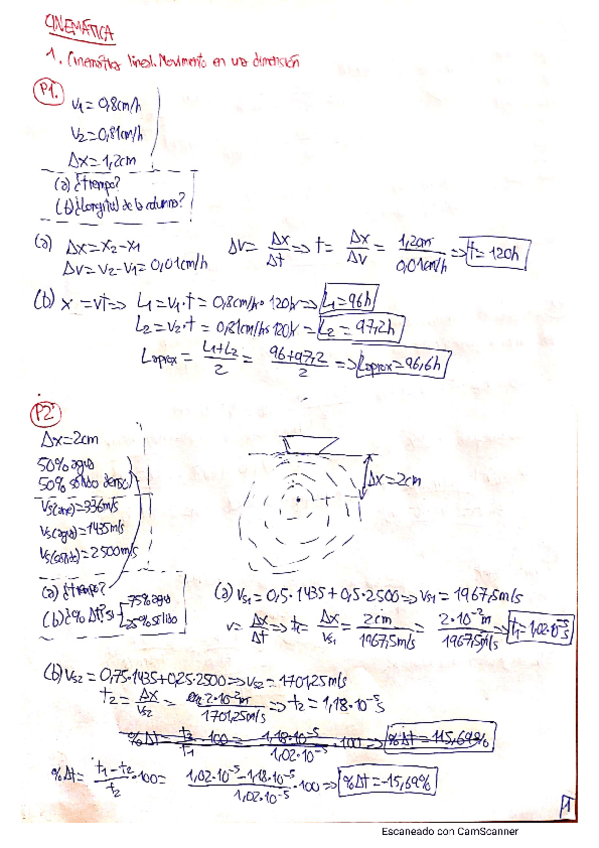 CINEMÁTICA
1. Cinemática lineal. Movimiento en una dimensión
P1.
V1 = 0,8cm/h
V2 = 0,81cm/h
Δx = 1,2cm
(a) ¿tiempo?
(b) ¿Longitud de la columna?
(a) Δx = x2 - x1 Δv = Δx/Δt => t = Δx/Δv = 1,2cm/0,01cm/h => t = 120h
Δv = v2 - v1 = 0,01cm/h
(b) x = vt => L1 = v1·t = 0,8cm/h · 120h => L1 = 96h
L2 = v2·t = 0,81cm/h · 120h = L2 = 97,2h
Laprox = L1+L2/2 = 96+97,2/2 => Laprox = 96,6h
P2
Δx = 2cm
50% agua
50% sólido denso
Vs(aire) = 336m/s
Vs(agua) = 1435m/s
Vs(sólido) = 2500m/s
Δx = 2cm
(a) ¿tiempo?
(b) ¿% Δt? si 75% agua
25% sólido
(a) Vs1 = 0,5·1435 + 0,5·2500 => Vs1 = 1967,5m/s
v = Δx/Δt => t1 = Δx/Vs1 = 2cm/1967,5m/s = 2·10^-2m/1967,5m/s => t1 = 1,02·10^-5 s
(b) Vs2 = 0,75·1435 + 0,25·2500 => Vs2 = 1701,25m/s
t2 = Δx/Vs2 = 2·10^-2m/1701,25m/s => t2 = 1,18·10^-5 s
%Δt = t2/t1 · 100 = 1,18·10^-5/1,02·10^-5 · 100 => %Δt = 115,69%
%Δt = t1 - t2/t2 · 100 = 1,02·10^-5 - 1,18·10^-5/1,02·10^-5 · 100 => %Δt = -15,69%
1
Escaneado con CamScanner